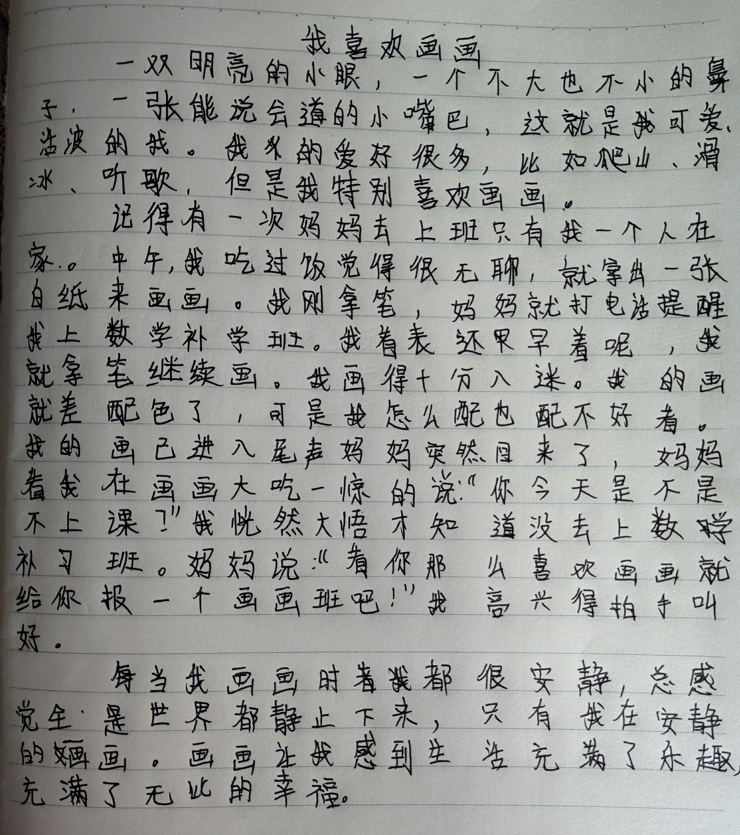 我喜欢画画
一双明亮的小眼，一个不大也不小的鼻
子，一张能说会道的小嘴巴，这就是我可爱、
活波的我。我的爱好很多，比如爬山、滑
冰、听歌，但是我特别喜欢画画。
记得有一次妈妈去上班只有我一个人在
家。中午，我吃过饭觉得很无聊，就拿出一张
白纸来画画。我刚拿笔，妈妈就打电话提醒
我上数学补学班。我看表还早着呢，我
就拿笔继续画。我画得十分入迷。我的画
就差配色了，可是我怎么配也配不好看。
我的画已进入尾声妈妈突然回来了，妈妈
看我在画画大吃一惊的说：“你今天是不是
不上课？”我恍然大悟才知道没去上数学
补习班。妈妈说：“看你那么喜欢画画就
给你报一个画画班吧！”我高兴得拍手叫
好。
每当我画画时我都很安静，总感
觉全是世界都静止下来，只有我在安静
的画画。画画让我感到生活充满了乐趣，
充满了无比的幸福。